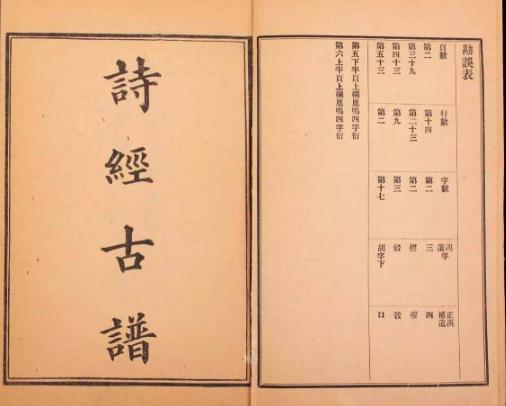 勘誤表
頁數 行數 字數 誤字 遺 正誤 補遺
第二 第十四 第二 三 四
第三十九 第二十三 第二
第四十三 第九 第三
第五十三 第二 第十七 胡字下 口
第五下半頁上欄鹿鳴四字衍
第六上半頁上欄鹿鳴四字衍
詩經古譜